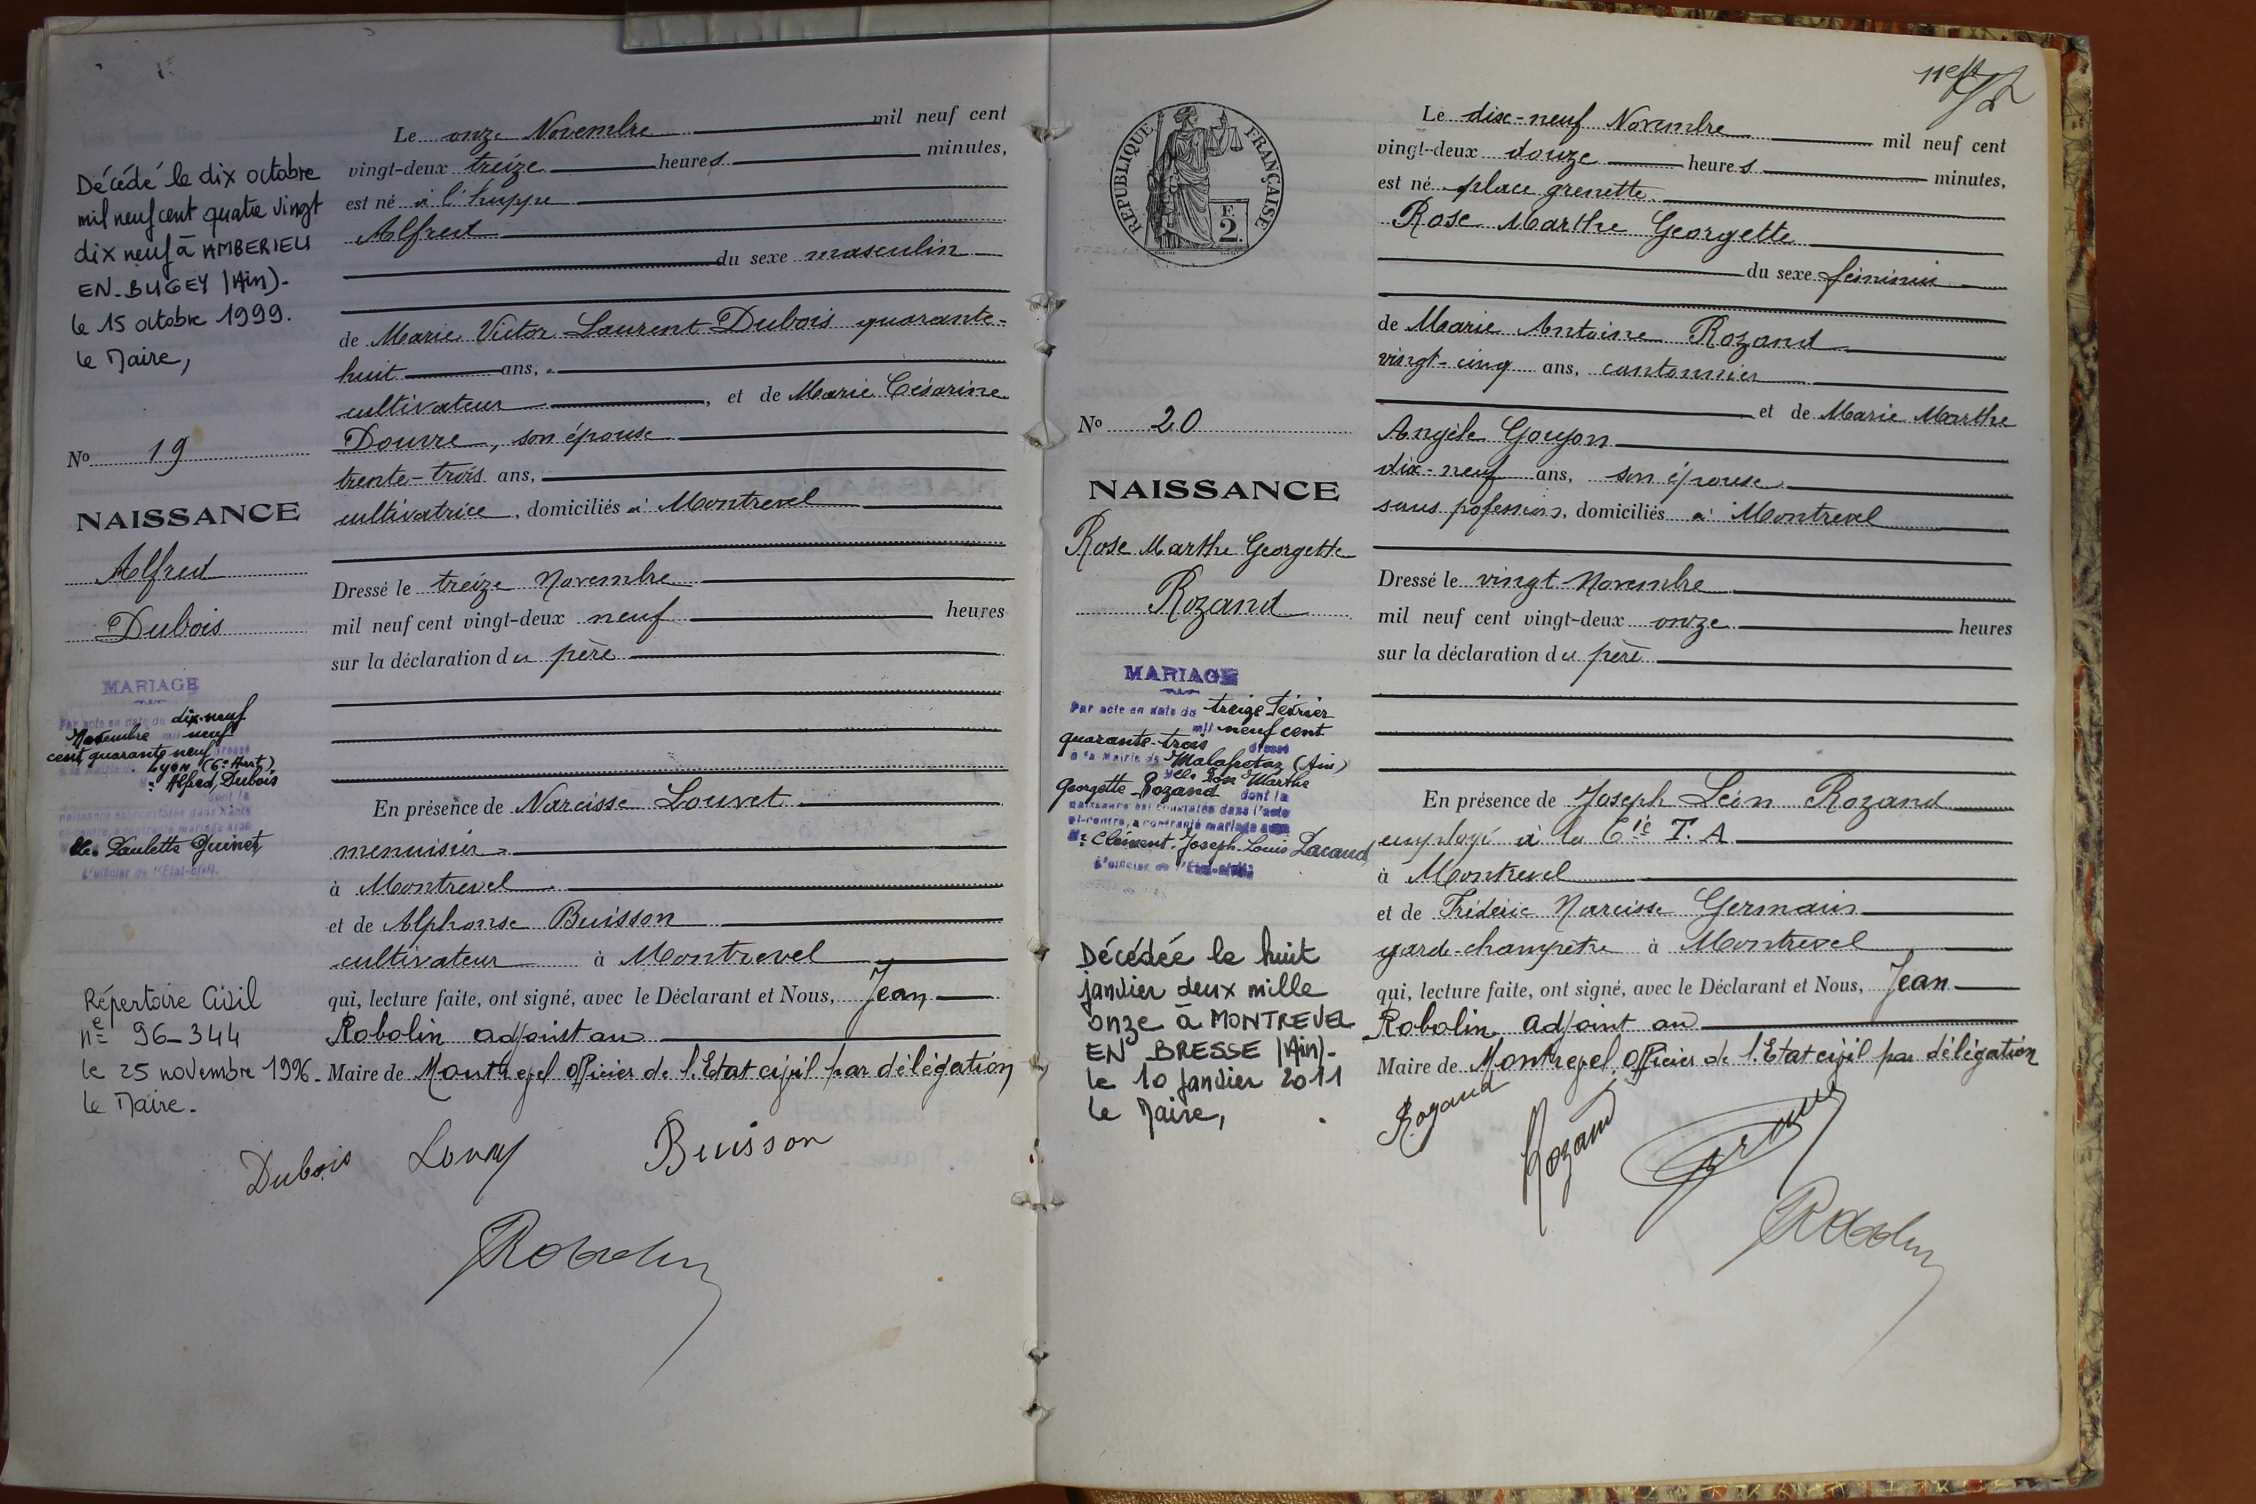 Décédé le dix octobre
mil neuf cent quatre vingt
dix neuf à AMBERIEU
EN-BUGEY (Ain)-
le 15 octobre 1999.
le Maire,
No 19
NAISSANCE
Alfred
Dubois
MARIAGE
Par acte en date du dix-neuf
Novembre mil neuf
cent quarante neuf dressé
Lyon (6e Arrt)
Mr Alfred Dubois
dont la
naissance est constatée dans l'acte
ci-contre, a contracté mariage avec
Mle Paulette Guinet
L'officier de l'État-civil.
Répertoire Civil
n° 96-344
le 25 novembre 1996-
le Maire.
Le onze Novembre mil neuf cent
vingt-deux treize heures minutes,
est né à l'huppe
Alfred
du sexe masculin
de Marie Victor Laurent Dubois quarante-
huit ans,
cultivateur, et de Marie Césarine
Douvre, son épouse
trente-trois ans,
cultivatrice, domiciliés à Montrevel
Dressé le treize Novembre
mil neuf cent vingt-deux neuf heures
sur la déclaration du père
En présence de Narcisse Louvet
menuisier
à Montrevel
et de Alphonse Buisson
cultivateur à Montrevel
qui, lecture faite, ont signé, avec le Déclarant et Nous, Jean
Robolin adjoint au
Maire de Montrevel Officier de l'Etat civil par délégation
Dubois Buisson
Robolin
11e
RÉPUBLIQUE FRANÇAISE
F.
2.
No 20
NAISSANCE
Rose Marthe Georgette
Rozand
MARIAGE
Par acte en date du treize Février
mil neuf cent
quarante-trois dressé
à la Mairie de Malafretaz (Ain)
Melle Rose Marthe
Georgette Rozand dont la
naissance est constatée dans l'acte
ci-contre, a contracté mariage avec
Mr Clément Joseph Louis Lacaud
L'officier de l'État-civil
Décédée le huit
janvier deux mille
onze à MONTREVEL
EN BRESSE (Ain)-
le 10 janvier 2011
le Maire,
Le dix-neuf Novembre mil neuf cent
vingt-deux douze heures minutes,
est né place grenette
Rose Marthe Georgette
du sexe féminin
de Marie Antoine Rozand
vingt-cinq ans, cantonnier
et de Marie Marthe
Angèle Goyon
dix-neuf ans, son épouse
sans pofession, domiciliés à Montrevel
Dressé le vingt Novembre
mil neuf cent vingt-deux onze heures
sur la déclaration du père
En présence de Joseph Léon Rozand
employé à la Cie T. A
à Montrevel
et de Frédéric Narcisse Germain
garde-champêtre à Montrevel
qui, lecture faite, ont signé, avec le Déclarant et Nous, Jean
Robolin adjoint au
Maire de Montrevel Officier de l'Etat civil par délégation
Rozand Rozand
Robolin